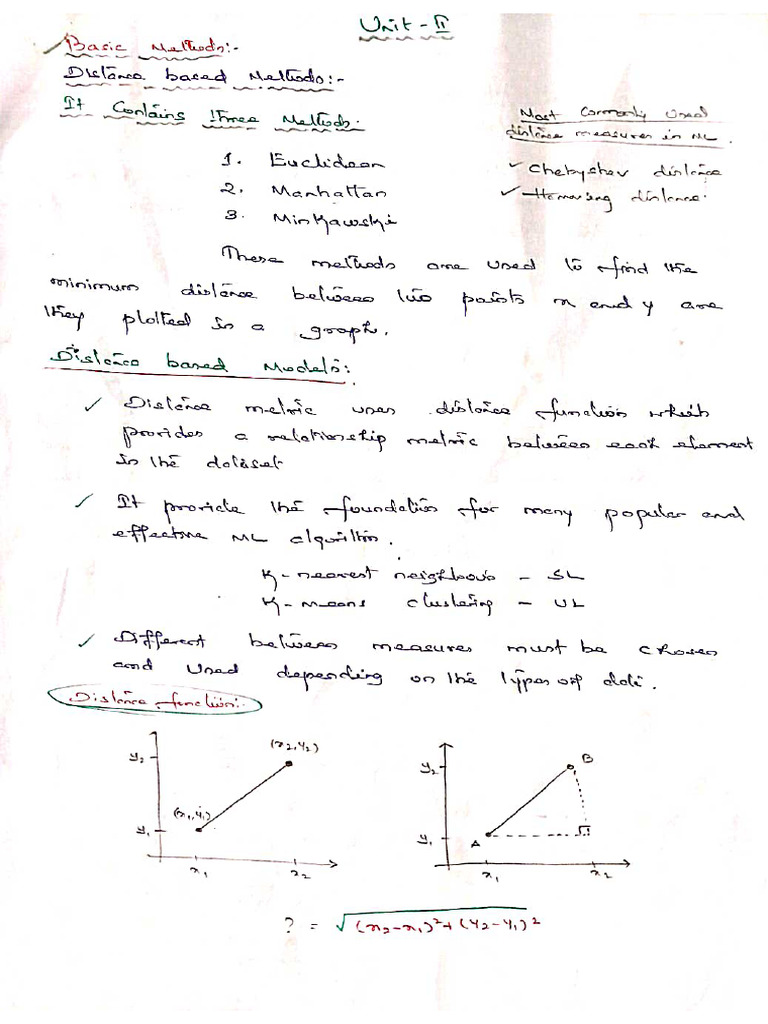 Unit - II
Basic Methods:-
Distance based Methods:-
It Contains three Methods.
1. Euclidean
2. Manhattan
3. Minkawski
Most Commonly Used
distance measures in ML.
✓ Chebyshev distance
✓ Hamming distance.
These methods are used to find the
minimum distance between two points x and y are
they plotted in a graph.
Distance based Models:
✓ Distance metric uses distance function which
provides a relationship metric between each element
in the dataset
✓ It provide the foundation for many popular and
effective ML algorithm.
K-nearest neighbours - SL
K-means clustering - UL
✓ Different between measures must be chosen
and used depending on the types of data.
Distance function:-
y2
(x2,y2)
(x1,y1)
y1
x1
x2
y2
B
y1
A
x1
x2
? = √(x2-x1)²+(y2-y1)²